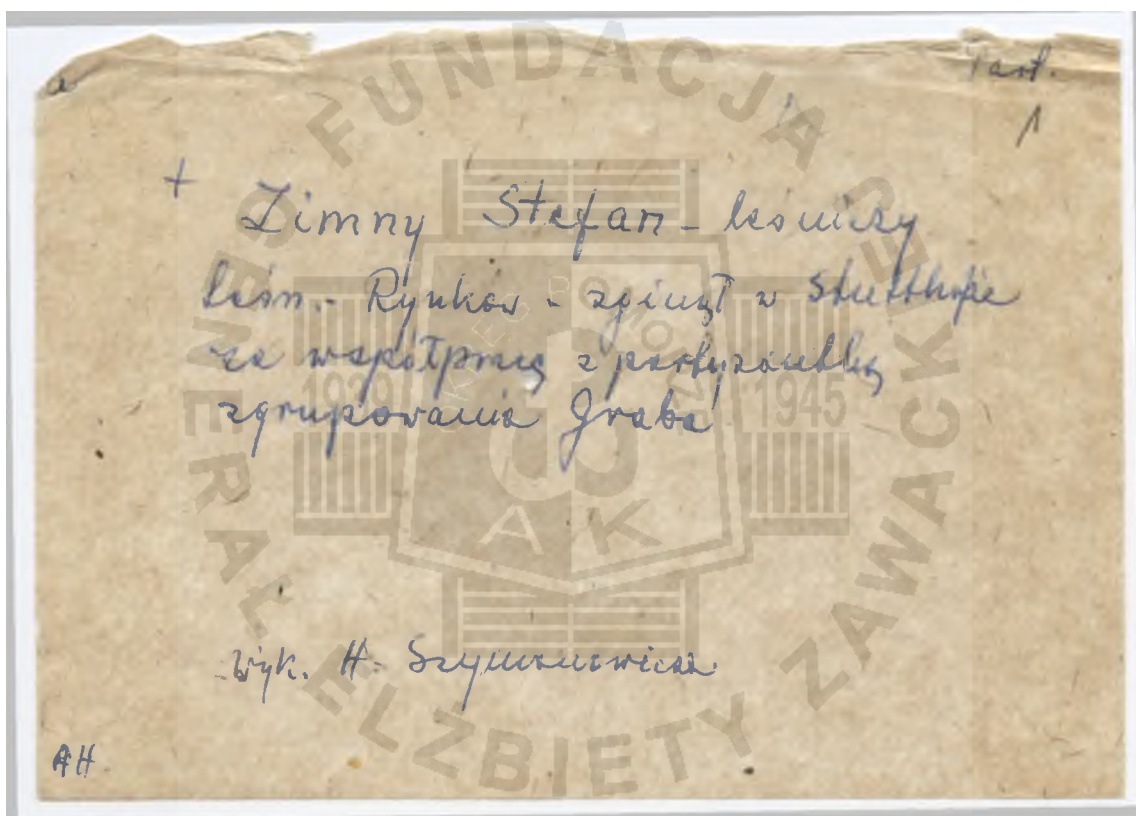 a
Part.
1
+ Zimny Stefan - leśniczy
leśn. - Rynków - zginął w Stutthofie
za współpracę z partyzantką
zgrupowania Graba
wyk. H. Szymanowicz
AH
FUNDACJA GENERAŁ ELŻBIETY ZAWACKIEJ
1939 1945
AK